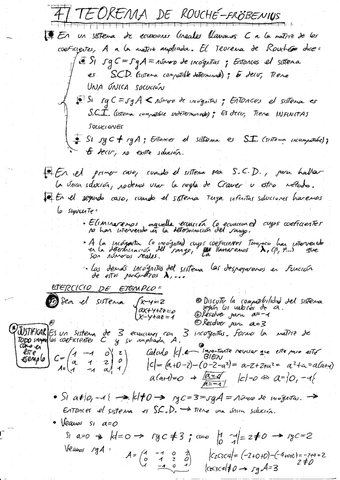 4) TEOREMA DE ROUCHÉ-FRÖBENIUS
En un sistema de ecuaciones lineales llamamos C a la matriz de los
coeficientes, A a la matriz ampliada. El Teorema de Rouché dice:
Si rgC = rgA = número de incógnitas; Entonces el sistema
es S.C.D. (sistema compatible determinado); Es decir, tiene
UNA ÚNICA SOLUCIÓN
Si rgC = rgA < número de incógnitas; Entonces el sistema es
S.C.I. (sistema compatible indeterminado); Es decir, tiene INFINITAS
SOLUCIONES
Si rgC ≠ rgA; Entonces el sistema es S.I. (sistema incompatible);
Es decir, no existe solución.
En el primer caso, cuando el sistema sea S.C.D., para hallar
la única solución, podemos usar la regla de Cramer u otro método.
En el segundo caso, cuando el sistema tenga infinitas soluciones haremos
lo siguiente:
• Eliminaremos aquella ecuación (o ecuaciones) cuyos coeficientes
no han intervenido en la determinación del rango.
• A la incógnita (o incógnitas) cuyos coeficientes tampoco han intervenido
en la determinación del rango, llamaremos λ, que
son números reales.
• Las demás incógnitas del sistema las despejaremos en función
de estos parámetros λ, ...
EJERCICIO DE EJEMPLO:
En el sistema
x-y=2
ax+y+2z=0
x-y+az=1
Discute la compatibilidad del sistema
según los valores de a.
Resolver para a=-1
Resolver para a=3
JUSTIFICAR
TODO
como en
este
ejemplo
Es un sistema de 3 ecuaciones con 3 incógnitas. Formo la matriz de
coeficientes C y su ampliada A.
Calculo |C|
Importante revisar que este paso esté
BIEN
a(a+1)=0
a=0
a=-1
|C|=0 ⇔ a={0,-1}
• Si a≠{0,-1} → |C|≠0 → rgC=3=rgA=número de incógnitas. →
Entonces el sistema es S.C.D. → Tiene una única solución.
• Veamos si a=0
Si a=0 → |C|=0 → rgC≠3; como
≠0 → rgC=2
Veamos rgA:
≠0 → rgA=3